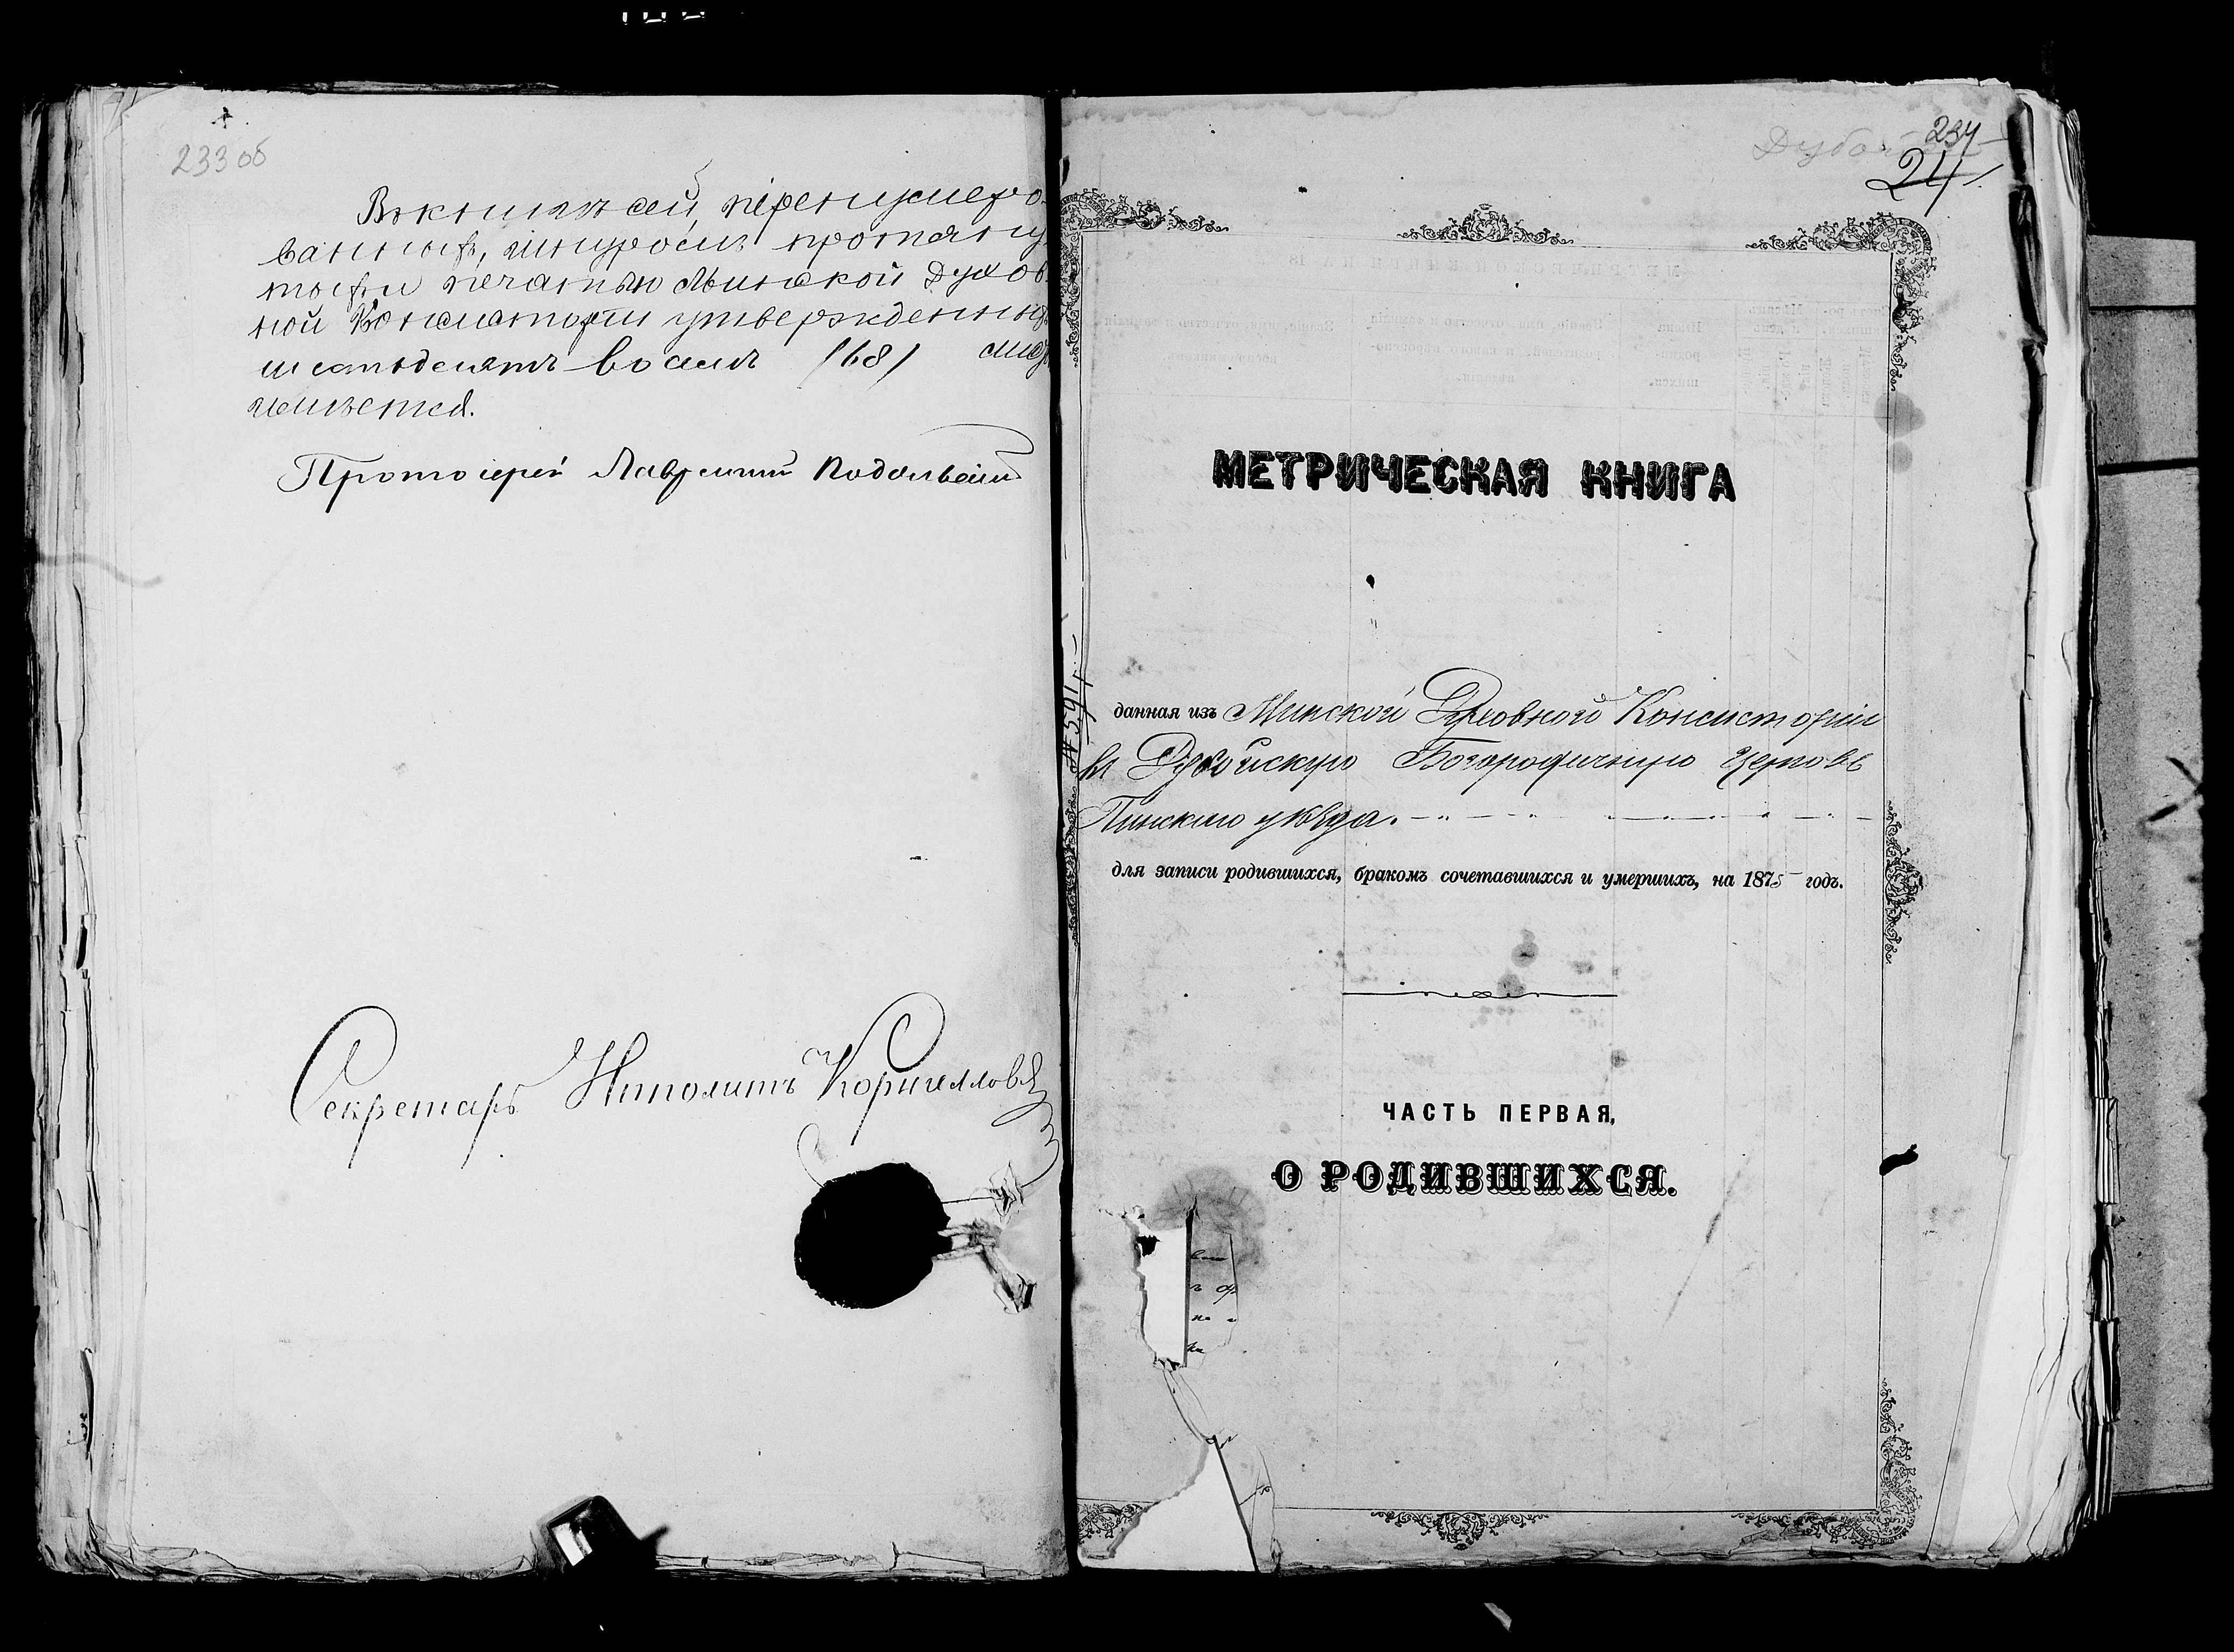 233 об
Въ книгѣ сей, перенумеро-
ванныхъ, шнуромъ протяну
тыхъ и печатью Минской Духов
ной Консисторіи утвержденныхъ
шестьдесятъ восемь /68/
числится.
Протоіерей Лаврентій Подольскій
Секретарь Ипполитъ Корнилловъ
234
24
МЕТРИЧЕСКАЯ КНИГА
данная изъ Минской Духовной Консисторіи
въ Дубойскую Богородичную Церковь
Пинскаго уѣзда.
для записи родившихся, бракомъ сочетавшихся и умершихъ, на 1875 годъ.
ЧАСТЬ ПЕРВАЯ,
О РОДИВШИХСЯ.